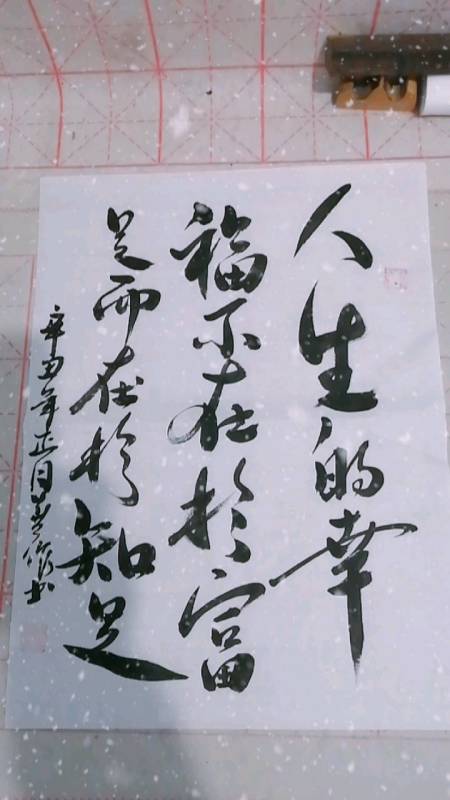 人生的幸
福不在於富
足而在於知足
辛丑年正月